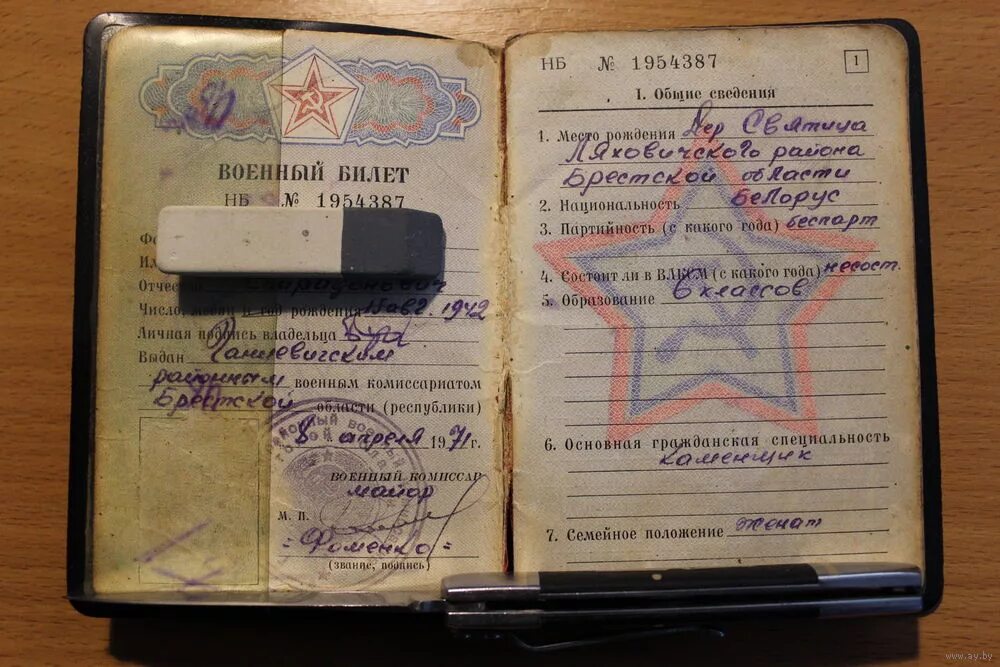 ВОЕННЫЙ БИЛЕТ
НБ № 1954387
Отчество
Число, месяц и год рождения 15 авг. 1942
Личная подпись владельца
Выдан Ганцевичским
районным военным комиссариатом
Брестской области (республики)
8 апреля 1971 г.
ВОЕННЫЙ КОМИССАР
майор
М. П.
= Фоменко =
(звание, подпись)
НБ № 1954387 1
1. Общие сведения
1. Место рождения Дер Святица
Ляховичского района
Брестской области
2. Национальность белорус
3. Партийность (с какого года) беспарт
4. Состоит ли в ВЛКСМ (с какого года) несост.
5. Образование 6 классов
6. Основная гражданская специальность
каменщик
7. Семейное положение женат
www.ay.by